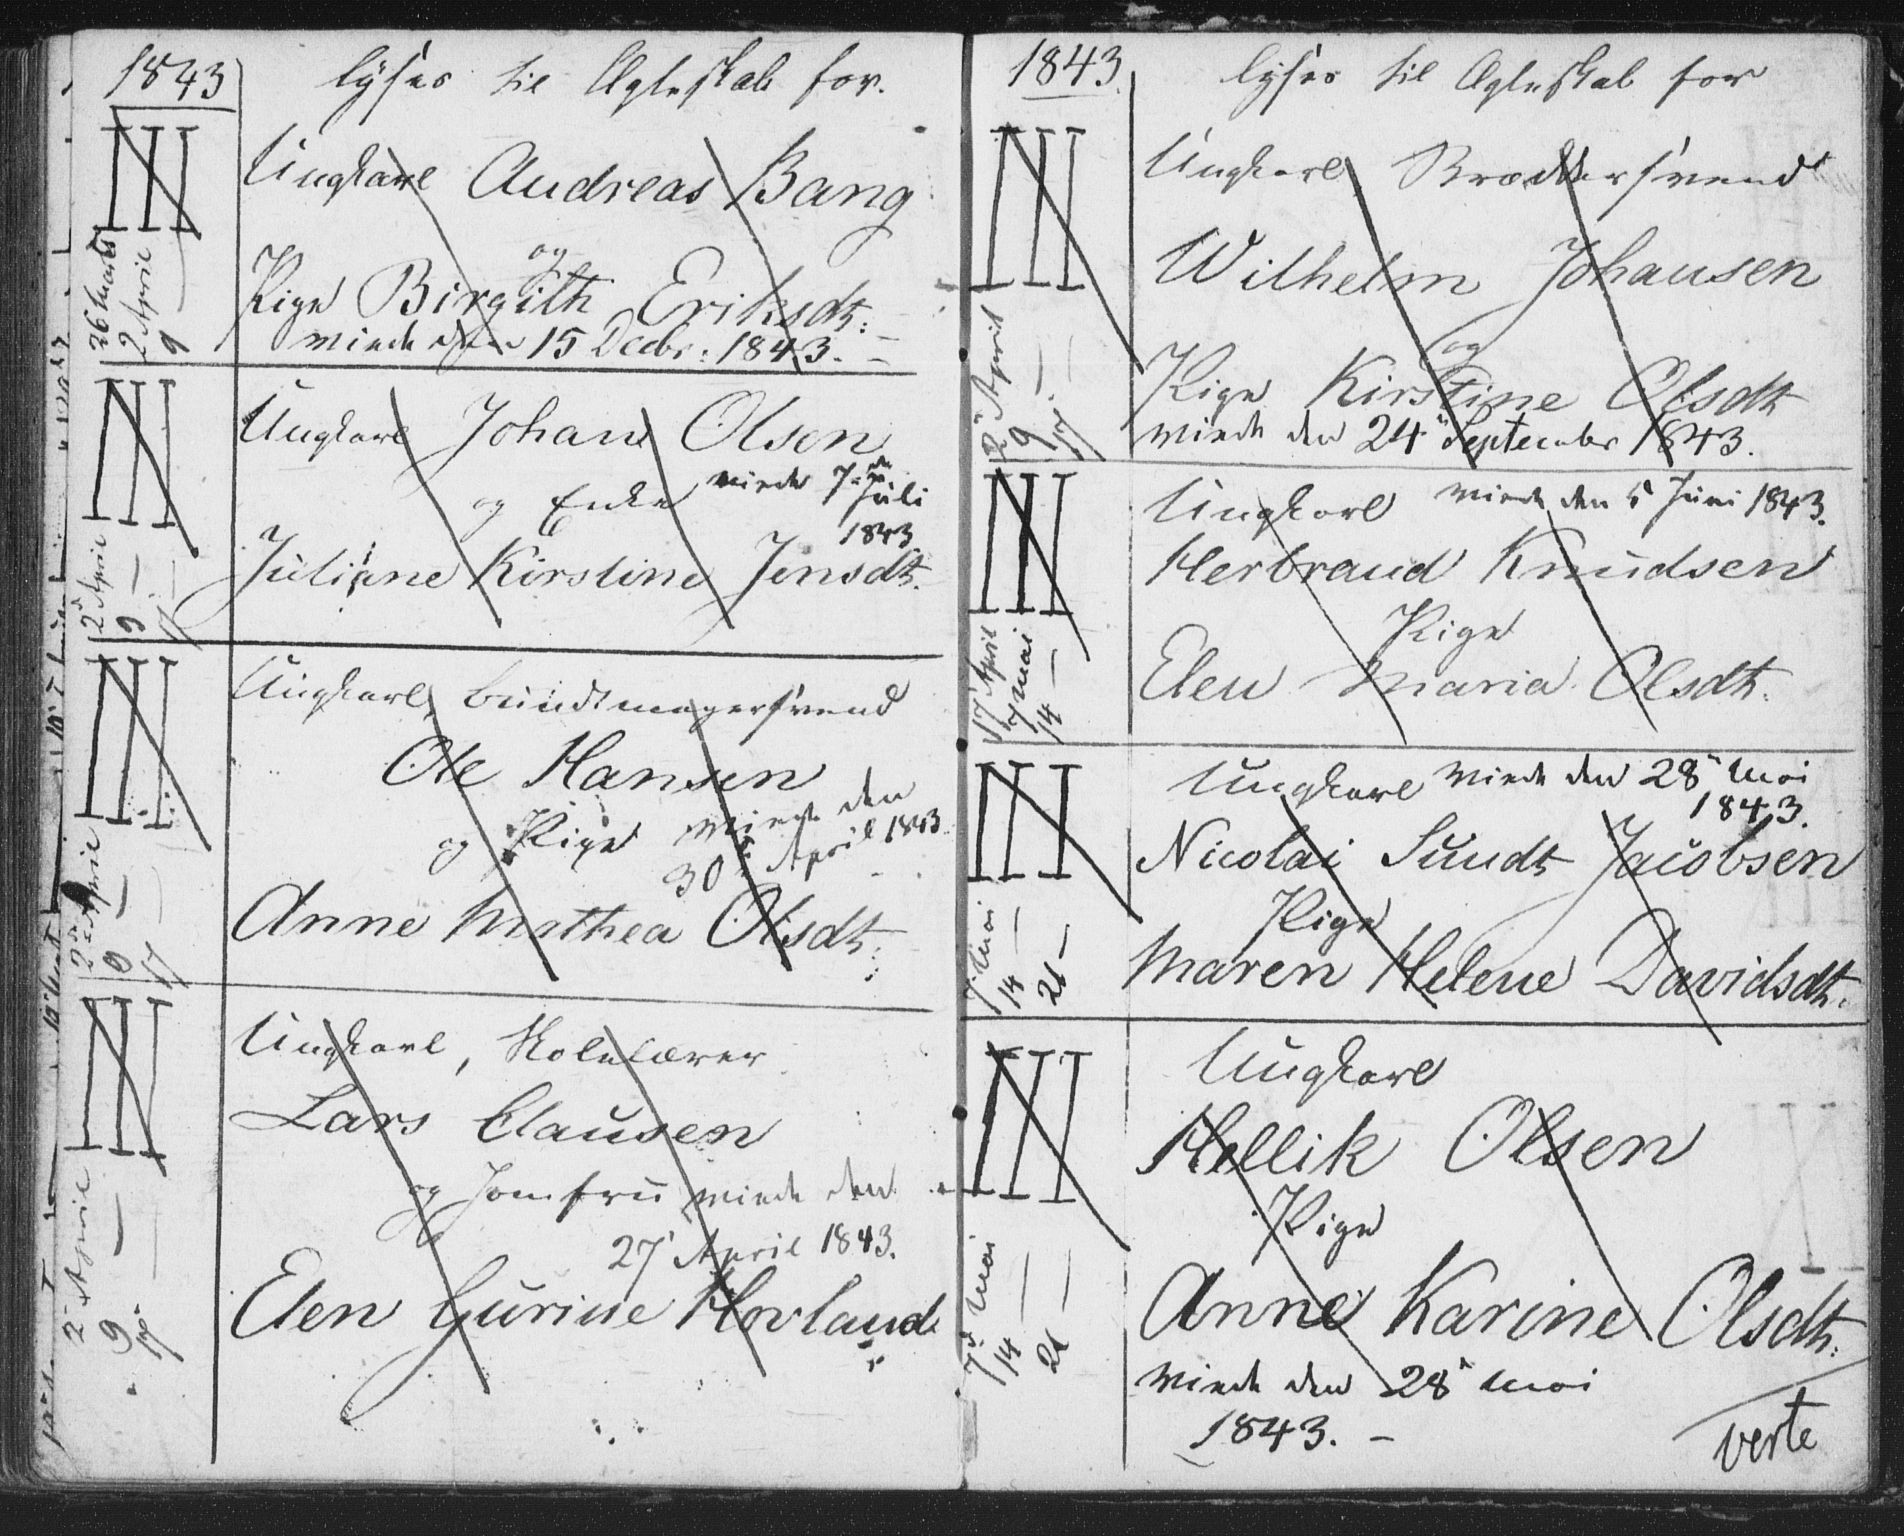 1843
lyses til Ægteskab for.
III
26 Marts
2 April
9 —
Ungkarl Andreas Bang
og
Pige Birgith Eriksdt:
viede den 15 Decbr: 1843. —
III
2 April
9 —
17 —
Ungkarl Johan Olsen
og Enke viede 7de Juli
1843
Juliane Kirstine Jensdt.
III
2 April
9 —
17 —
Ungkarl, Bundtmagersvend
Ole Hansen
og Pige viede den
30 April 1843
Anne Mathea Olsdt:
III
2 April
9 —
17 —
Ungkarl, Skolelærer
Lars Clausen
og Jomfru viede den
27 April 1843.
Elen Gurine Hovland.
1843.
lyses til Ægteskab for
III
2 April
9 —
17 —
Ungkarl
Wilhelm Johansen
og
Pige Kirstine Olsdt
viede den 24 September 1843.
III
17 April
7 Mai
14 —
Ungkarl viede den 5 Juni 1843.
Herbrand Knudsen
Pige
Elen Maria Olsdt.
III
7 Mai
14 —
21 —
Ungkarl viede den 28 Mai
1843.
Nicolai Sundt Jacobsen
Pige
Maren Helene Davidsdt.
III
7 Mai
14 —
21 —
Ungkarl
Hellik Olsen
Pige
Anne Karine Olsdt.
viede den 28 Mai
1843. —
verte